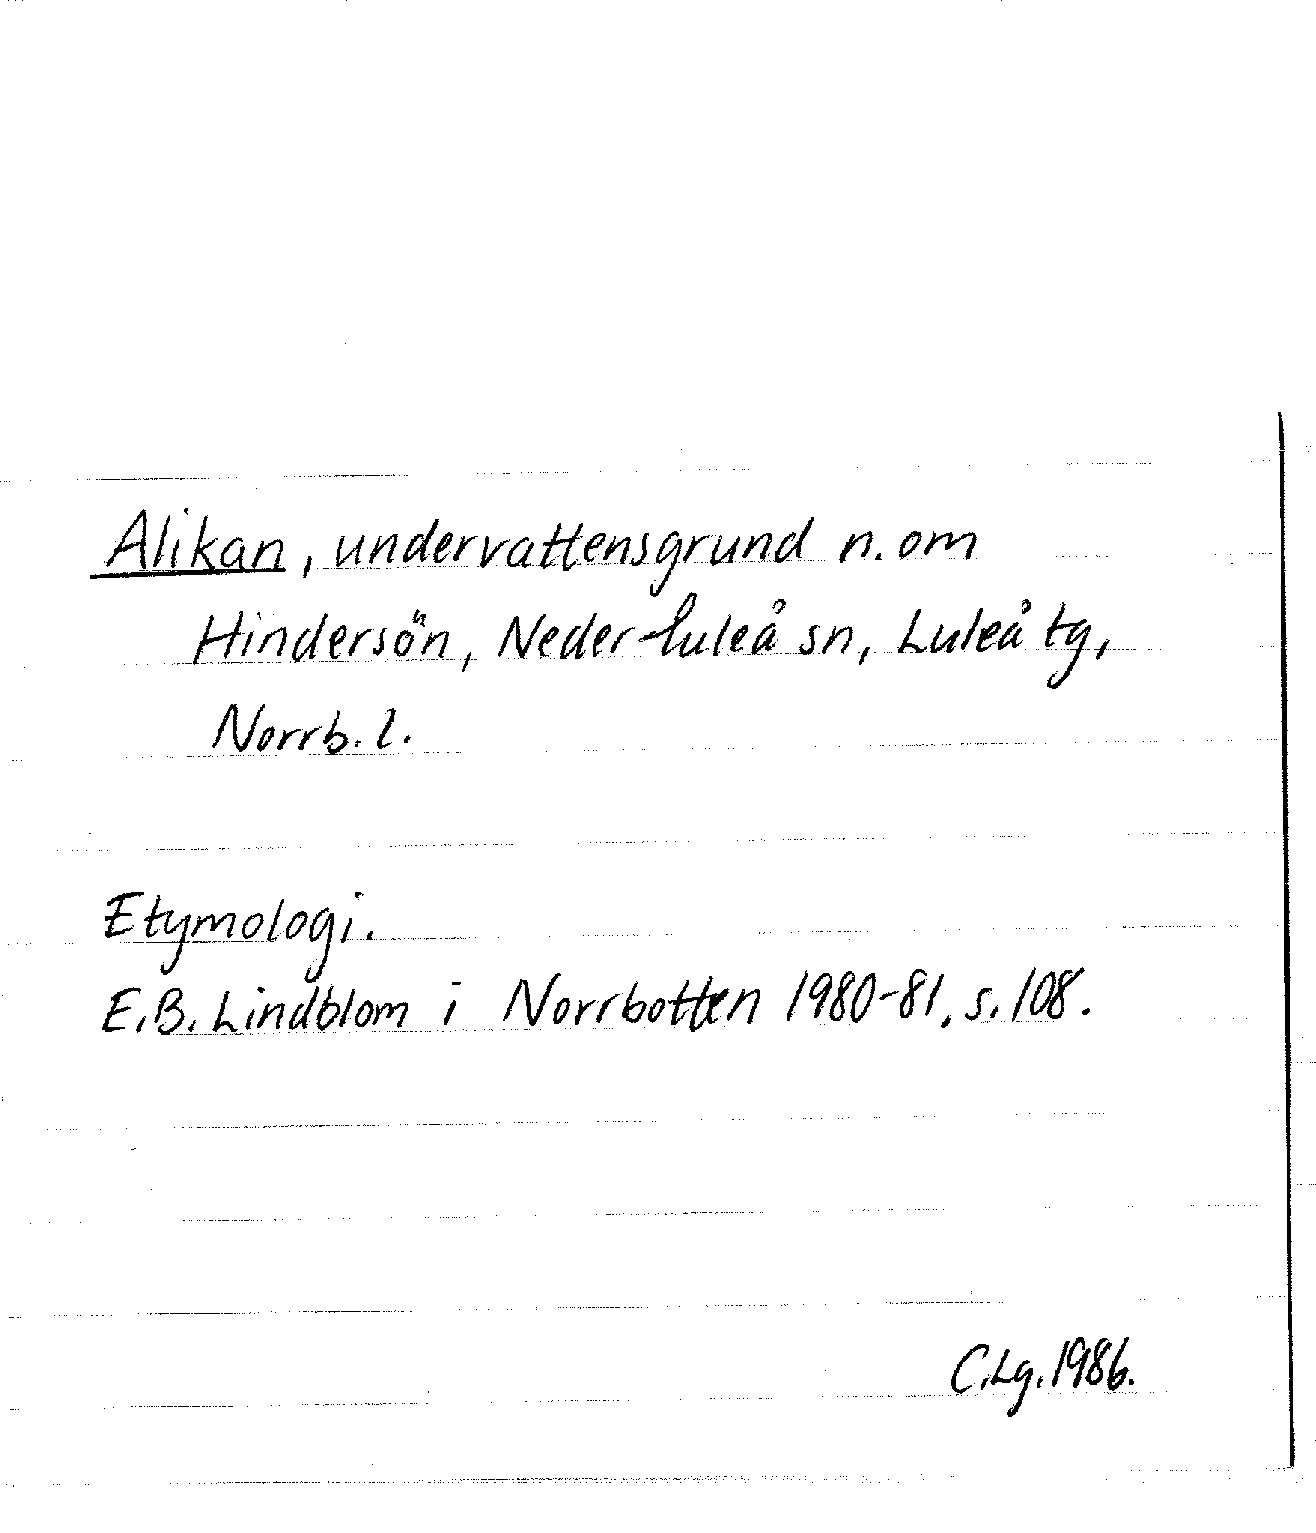 Alikan, undervattensgrund n. om
Hindersön, Neder-Luleå sn, Luleå tg,
Norrb. l.
Etymologi.
E.B. Lindblom i Norrbotten 1980-81, s. 108.
C.Lg. 1986.